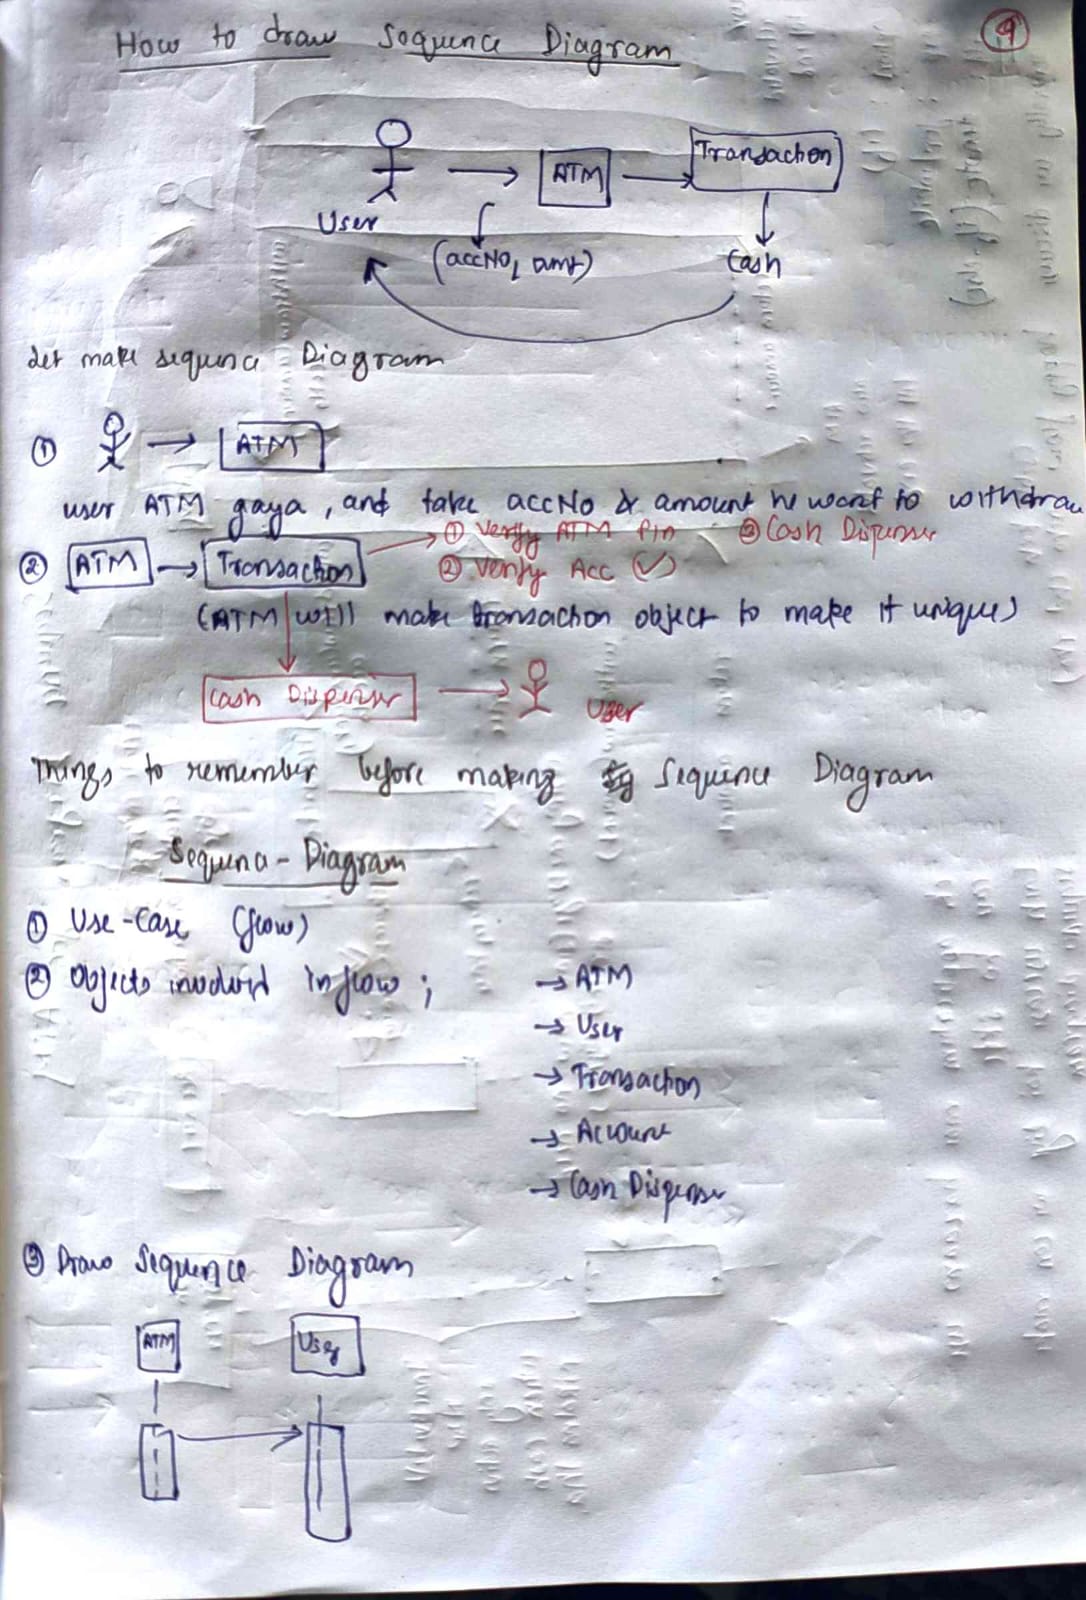 How to draw Soquence Diagram
9
Transaction
ATM
User
(accNO, amt)
Cash
Let make sequence Diagram
① ATM
user ATM gaya, and take accNo & amount he want to withdraw
① Verify ATM Pin ③ Cash Dispenser
② ATM Transaction ② Verify Acc (✓)
(ATM will make transaction object to make it unique)
Cash Dispenser
User
Things to remember before making Sequence Diagram
Sequence - Diagram
① Use-Case (flow)
② Objects involved in flow ; → ATM
→ User
→ Transaction
→ Account
→ Cash Dispenser
③ Draw Sequence Diagram
ATM User